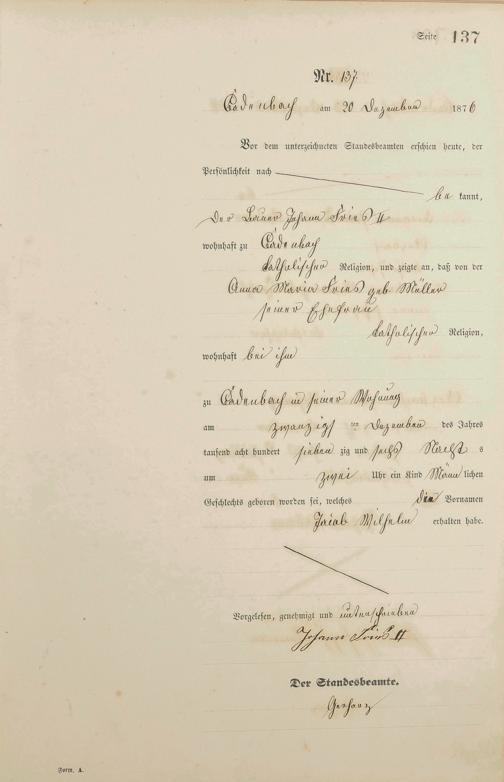 Seite 137
Nr. 137.
Cadenbach am 20 Dezember 1876
Vor dem unterzeichneten Standesbeamten erschien heute, der
Persönlichkeit nach
be kannt,
der Bauer Johann Fries II
wohnhaft zu Cadenbach
katholischer Religion, und zeigte an, daß von der
Anna Maria Fries geb Müller
seiner Ehefrau
katholischer Religion,
wohnhaft bei ihm
zu Cadenbach in seiner Wohnung
am zwanzigs ten Dezember des Jahres
tausend acht hundert sieben zig und sechs Nacht s
um zwei Uhr ein Kind Männ lichen
Geschlechts geboren worden sei, welches die Vornamen
Jacob Wilhelm erhalten habe.
Vorgelesen, genehmigt und unterschrieben
Johann Fries II
Der Standesbeamte.
Gerharz
Form. A.